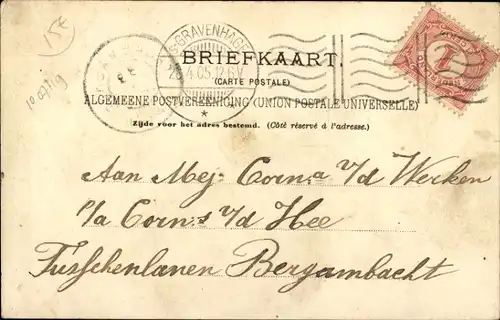 15€
10 0/119
'S-GRAVENHAGE
26.4.05.12-6V
BRIEFKAART.
(CARTE POSTALE)
ALGEMEENE POSTVEREENIGING (UNION POSTALE UNIVERSELLE)
Zijde voor het adres bestemd. (Côté réservé à l'adresse.)
Aan Mej. Corn.a v/d Werken
p/a Corn.s v/d Hee
Tusschenlanen Bergambacht